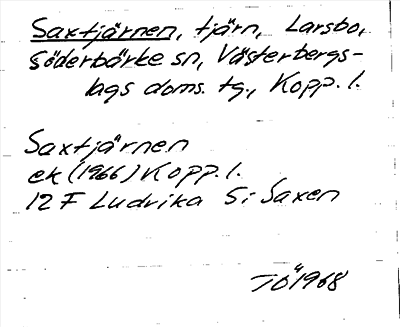 Saxtjärnen, tjärn, Larsbo,
Söderbärke sn, Västerbergs-
lags doms. tg., Kopp. l.
Saxtjärnen
ek (1966) Kopp. l.
12 F Ludvika S: Saxen
TÖ 1968